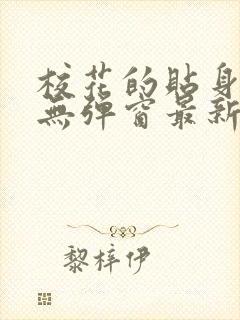 校花的貼身
無彈窗最新
黎梓伊